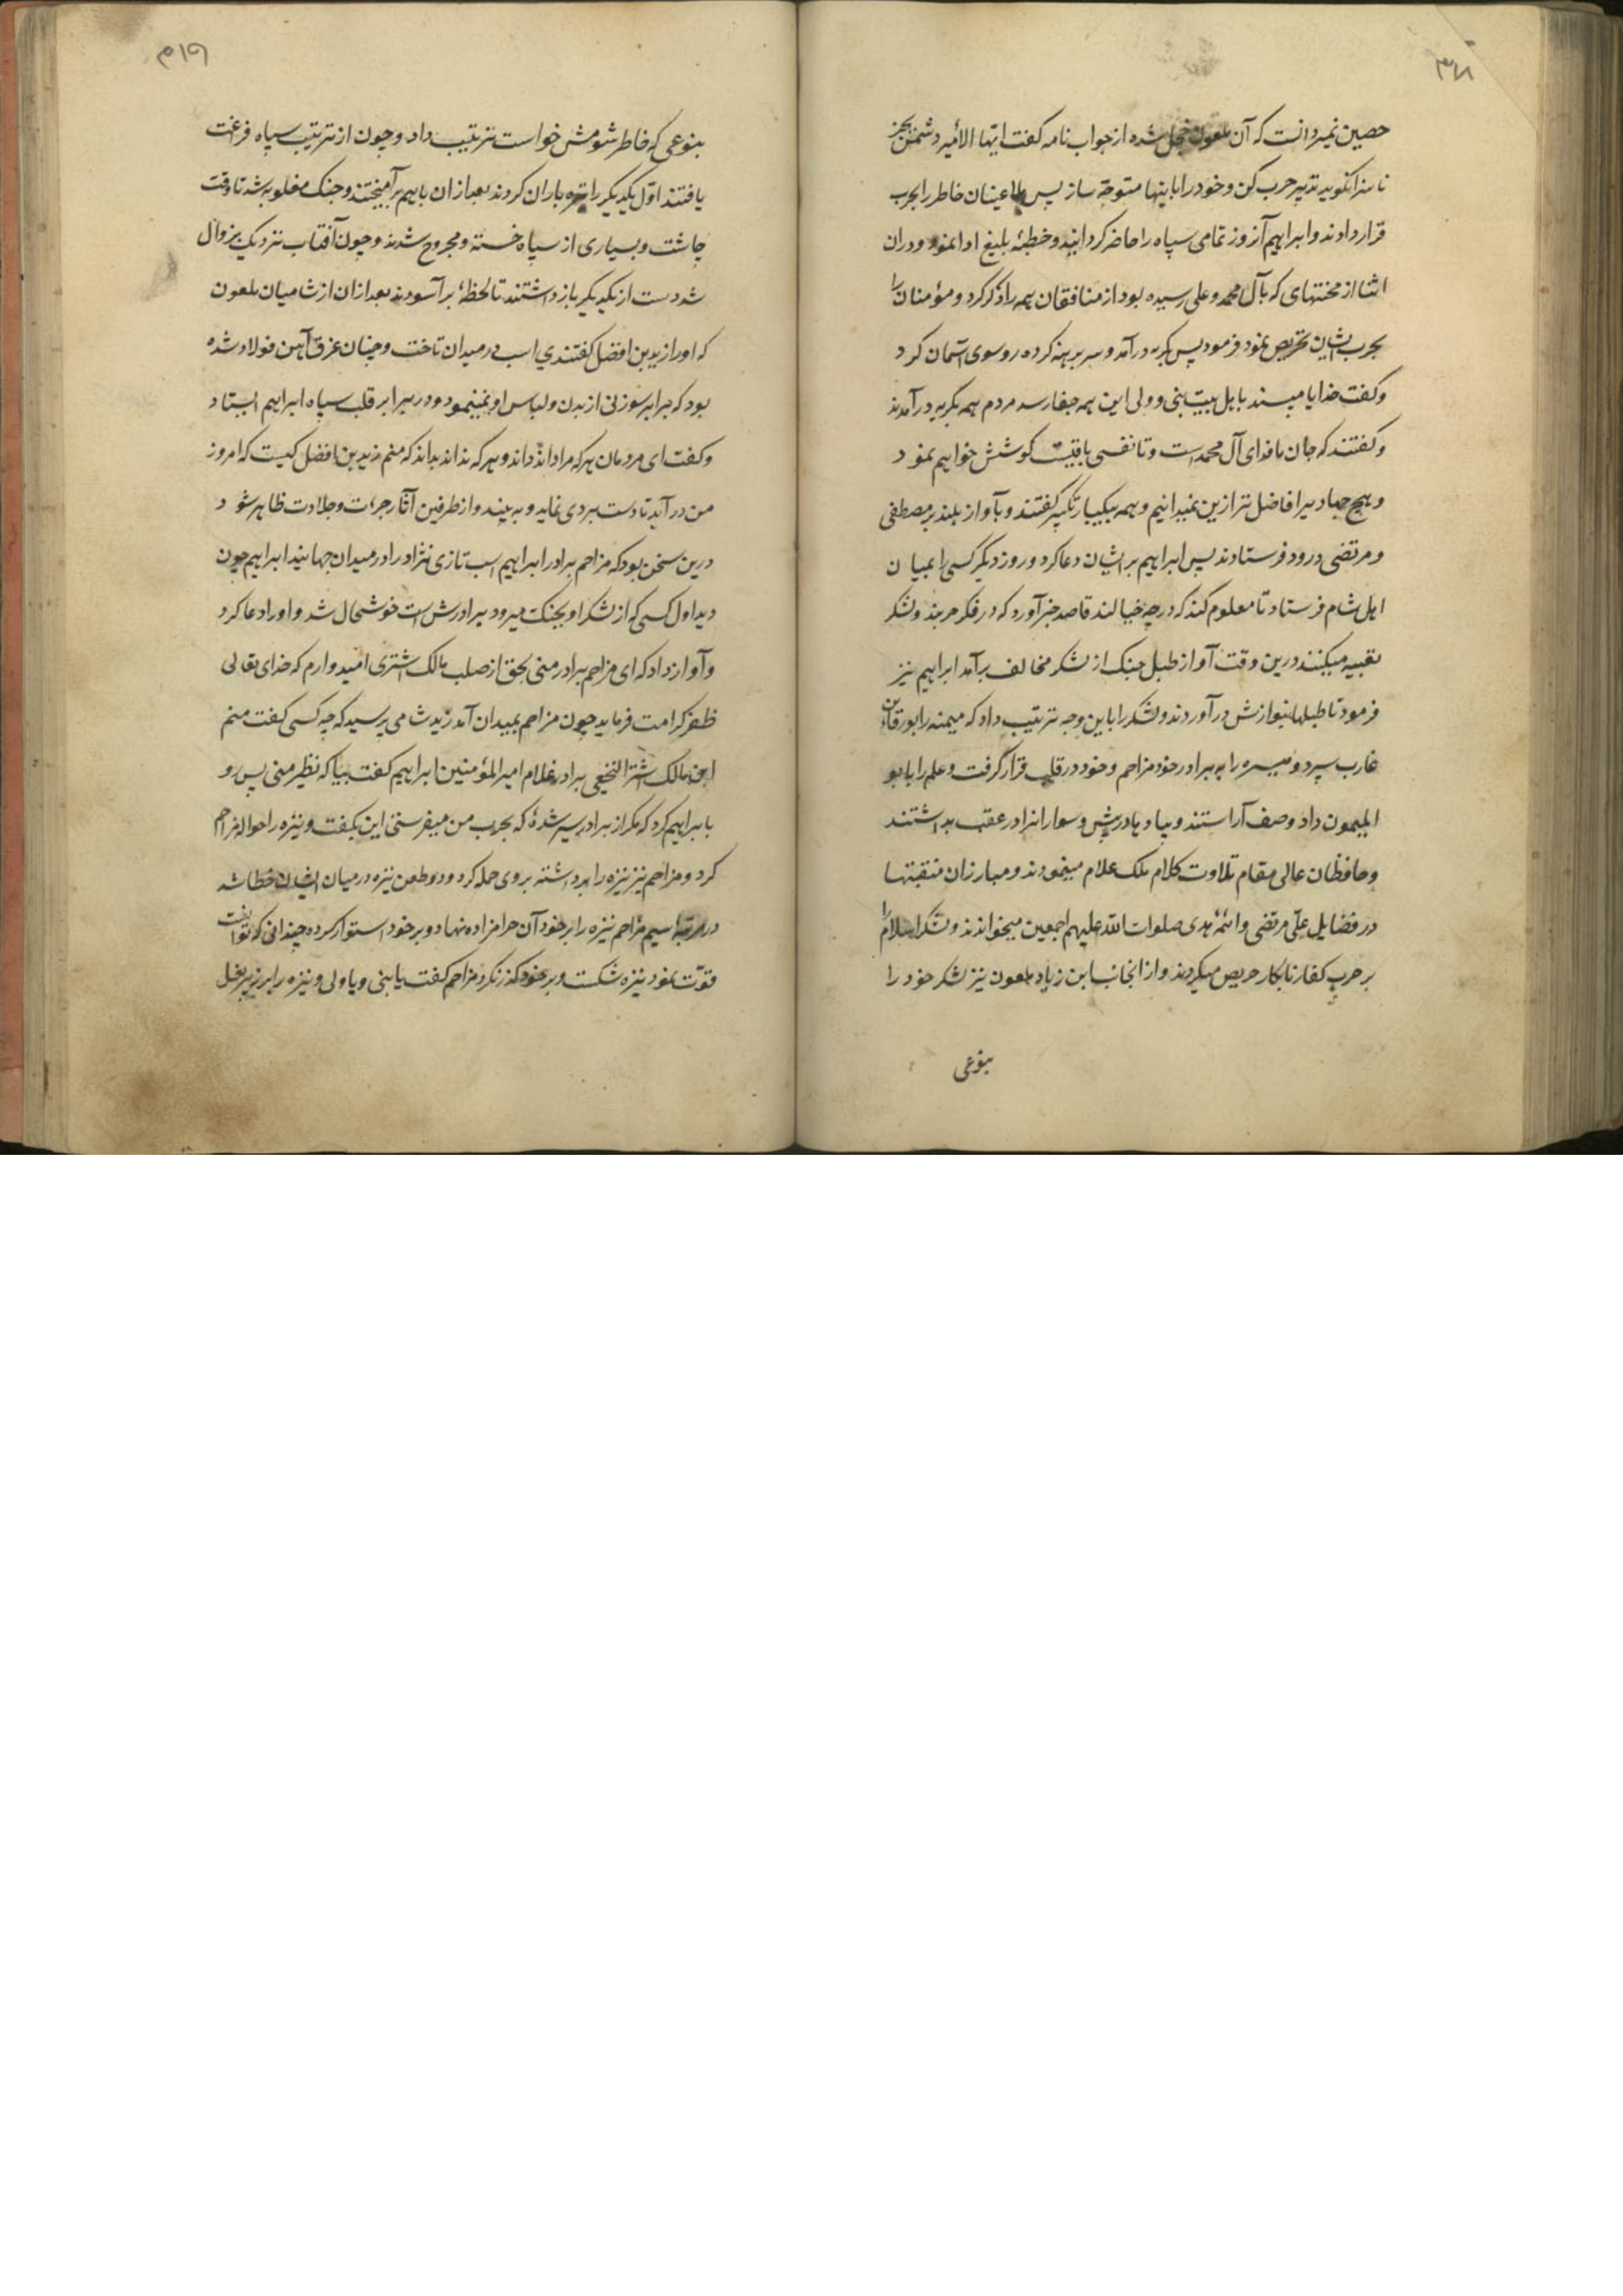 ۳۱۸
حصین نمیدانست که آن ملعون خجل شده از جواب نامه کفت ایها الامیر دشمن بجز
ناسزا نکوید تدبیر حرب کن و خود را باینها متوجه ساز پس ملاعینان خاطر را بحرب
قرار دادند و ابراهیم آنروز تمامی سپاه را حاضر کردانید و خطبهٔ بلیغ ادا نمود و دران
اثنا از محنتهای که بآل محمد و علی رسیده بود از منافقان همه را ذکر کرد و مؤمنان را
بحرب ایشان تحریص نمود فرمود پس بکریه درآمد و سر برهنه کرده رو سوی آسمان کرد
و کفت خدایا مپسند باهل بیت نبی و ولی این همه جفا رسد مردم همه بکریه درآمدند
و کفتند که جان ما فدای آل محمد است و تا نفسی باقیست کوشش خواهیم نمود
و هیچ جهاد یرا فاضل تر ازین نمیدانیم و همه بیکبار تکبیر کفتند و بآواز بلند بر مصطفی
و مرتضی درود فرستادند پس ابراهیم بر ایشان دعا کرد و روز دیکر کسی را بمیان
اهل شام فرستاد تا معلوم کند که در چه خیالند قاصد خبر آورد که در فکر حربند و لشکر
تعبیه میکنند درین وقت آواز طبل جنک از لشکر مخالف برآمد ابراهیم نیز
فرمود تا طبلها بنوازش درآوردند و لشکر را باین وجه ترتیب داد که میمنه را بورقا بن
غارب سپرد و میسره را به برادر خود مزاحم و خود در قلب قرار کرفت و علم را بابو
المیمون داد و صف آراستند و پیاده پادر پیش و سوارانرا در عقب بداشتند
و حافظان عالی مقام تلاوت کلام ملک علام مینمودند و مبارزان منقبتها
در فضایل علی مرتضی و ائمه هدی صلوات الله علیهم اجمعین میخواندند و لشکر اسلام را
بر حرب کفار نابکار حریص میکردند و از انجانب ابن زیاد ملعون نیز لشکر خود را
بنوعی
۳۱۹
بنوعی که خاطر شومش خواست ترتیب داد و چون از ترتیب سپاه فرغت
یافتند اول یکدیکر را تیره باران کردند بعد ازان باهم برآمیختند و جنک مغلوبه شد تا وقت
چاشت و بسیاری از سپاه خسته و مجروح شدند و چون آفتاب نزدیک بزوال
شد دست از یکدیکر باز داشتند تا لحظهٔ برآسودند بعد ازان از شامیان ملعون
که او را زید بن افضل کفتندی اسب در میدان تاخت و چنان غرق آهن فولاد شده
بود که برابر سوزنی از بدن و لباس او نمینمود و در برابر قلب سپاه ابراهیم ایستاد
و کفت ای مردمان هرکه مرا داند داند و هرکه نداند بداند که منم زید بن افضل کیست که امروز
من درآید تا دست بردی نماید و به بیند و از طرفین آثار جرٲت و جلادت ظاهر شود
درین سخن بود که مزاحم برادر ابراهیم اسب تازی نژاد را در میدان جهانید ابراهیم چون
دید اول کسی که از لشکر او بجنک میرود برادرش است خوشحال شد و او را دعا کرد
و آواز داد که ای مزاحم برادر منی بحق از صلب مالک اشتری امیدوارم که خدای تعالی
ظفر کرامت فرماید چون مزاحم بمیدان آمد زید شامی پرسید که چه کسی کفت منم
ابن مالک اشتر النخعی برادر غلام امیر المؤمنین ابراهیم کفت بیا که نظیر منی پس رو
بابراهیم کرد که مکر از برادر سیر شدهٔ که بحرب من میفرستی این بکفت و نیزه را حواله مزاحم
کرد و مزاحم نیز نیزه را برداشته بروی حمله کرد و دو طعن نیزه در میان ایشان خطا شد
در مرتبهٔ سیم مزاحم نیزه را بر خود آن حرامزاده نهاد و بر خود استوار کرده چندانی که توانست
قوت نمود نیزه شکست و بر خود کذر نکرد مزاحم کفت یا نبی و یا ولی و نیزه را بر زیر بغل